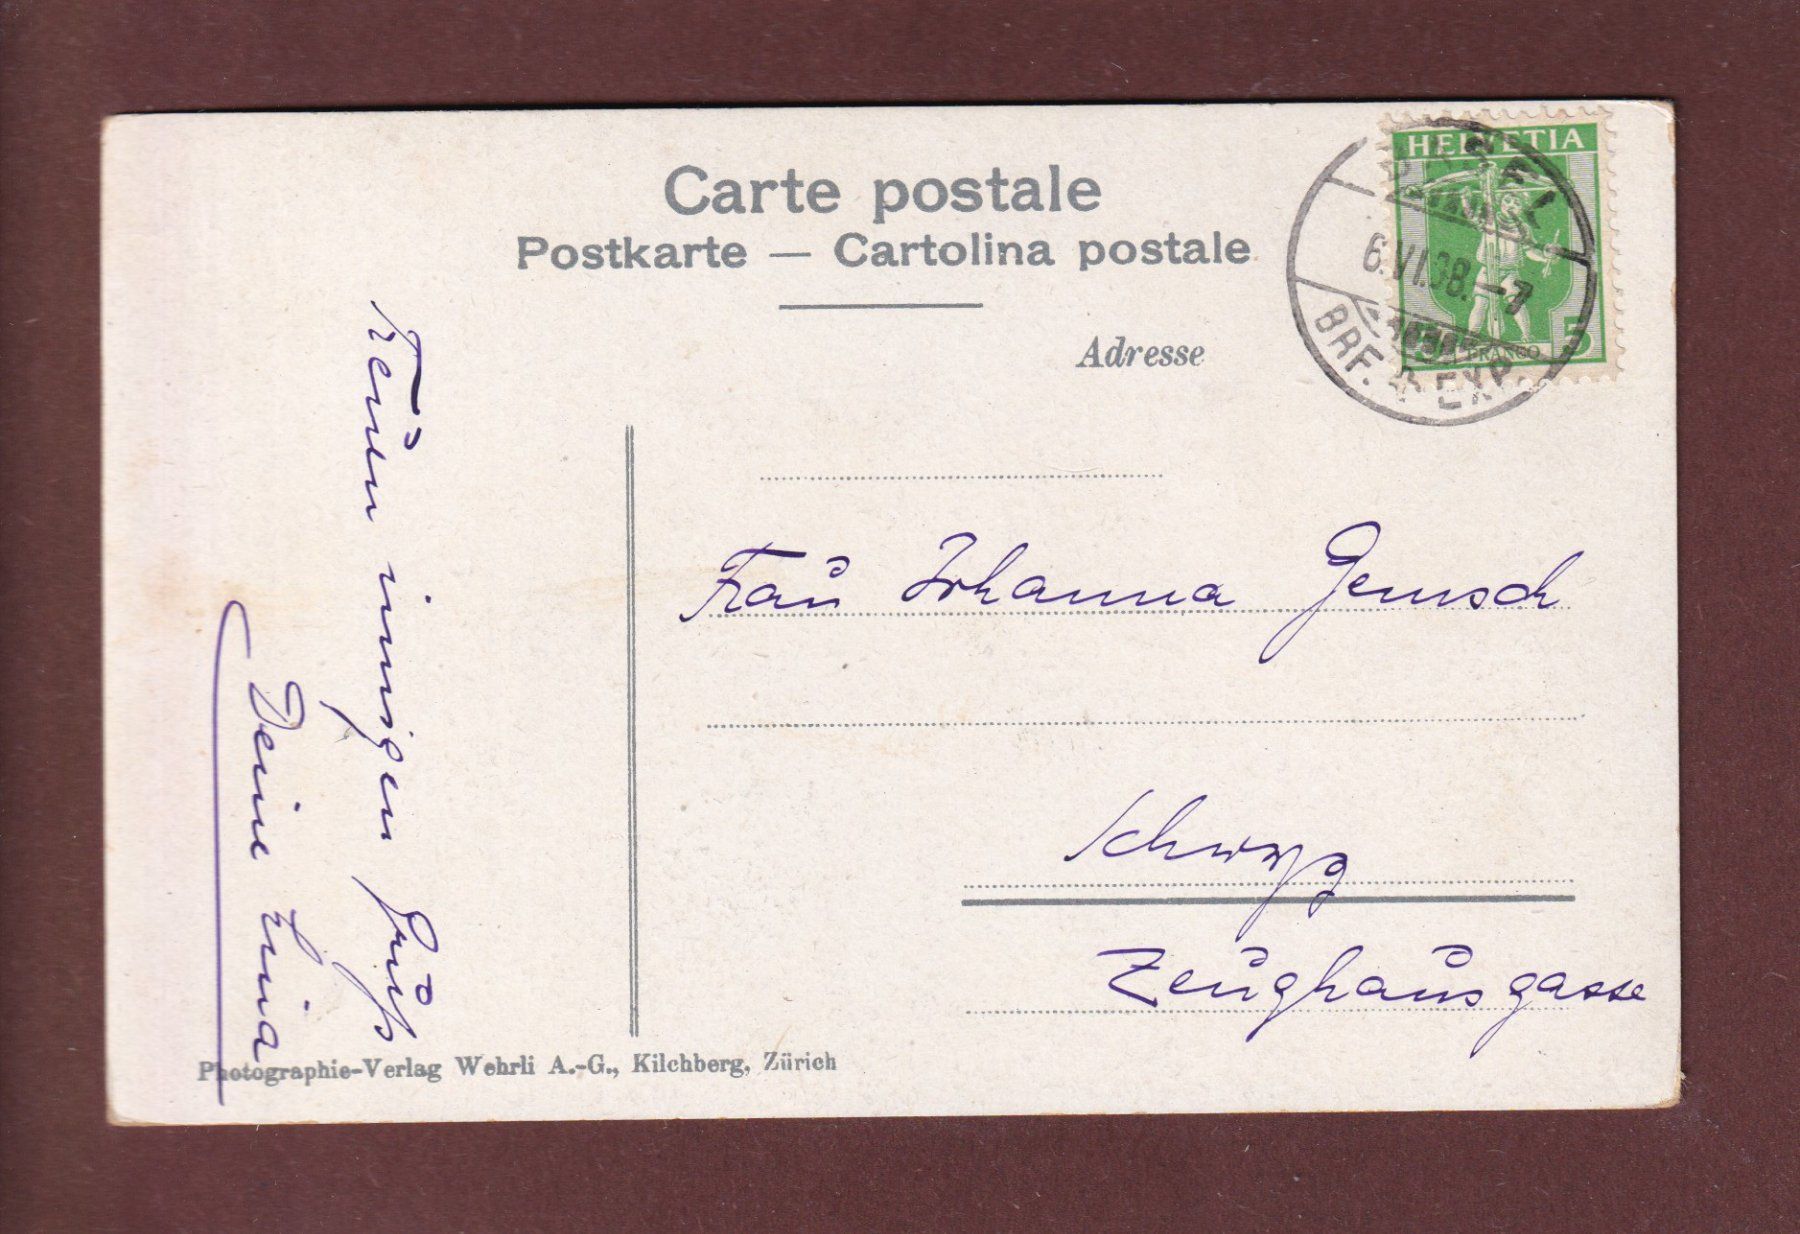 Carte postale
Postkarte — Cartolina postale
Adresse
HELVETIA
5 FRANCO 5
BASEL
6.VI.08.-7
BRF. EXP.
Frau Johanna Gemsch
Schwyz
Zeughausgasse
Treuen innigen Gruß
Deine Lina
Photographie-Verlag Wehrli A.-G., Kilchberg, Zürich